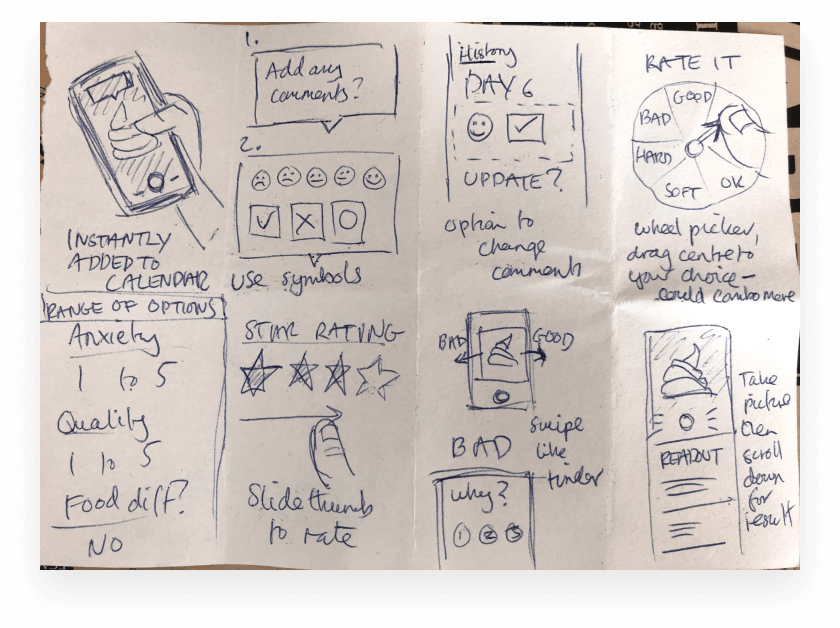 INSTANTLY
ADDED TO
CALENDAR
1.
Add any
comments?
2.
use symbols
History
DAY 6
UPDATE?
option to
change
comments
RATE IT
GOOD
BAD
HARD
SOFT
OK
wheel picker,
drag centre to
your choice –
could combo more
RANGE OF OPTIONS
Anxiety
1 to 5
Quality
1 to 5
Food diff?
NO
STAR RATING
Slide thumb
to rate
BAD
GOOD
swipe
like
tinder
BAD
why?
1 2 3
READOUT
Take
picture
then
scroll
down
for
result